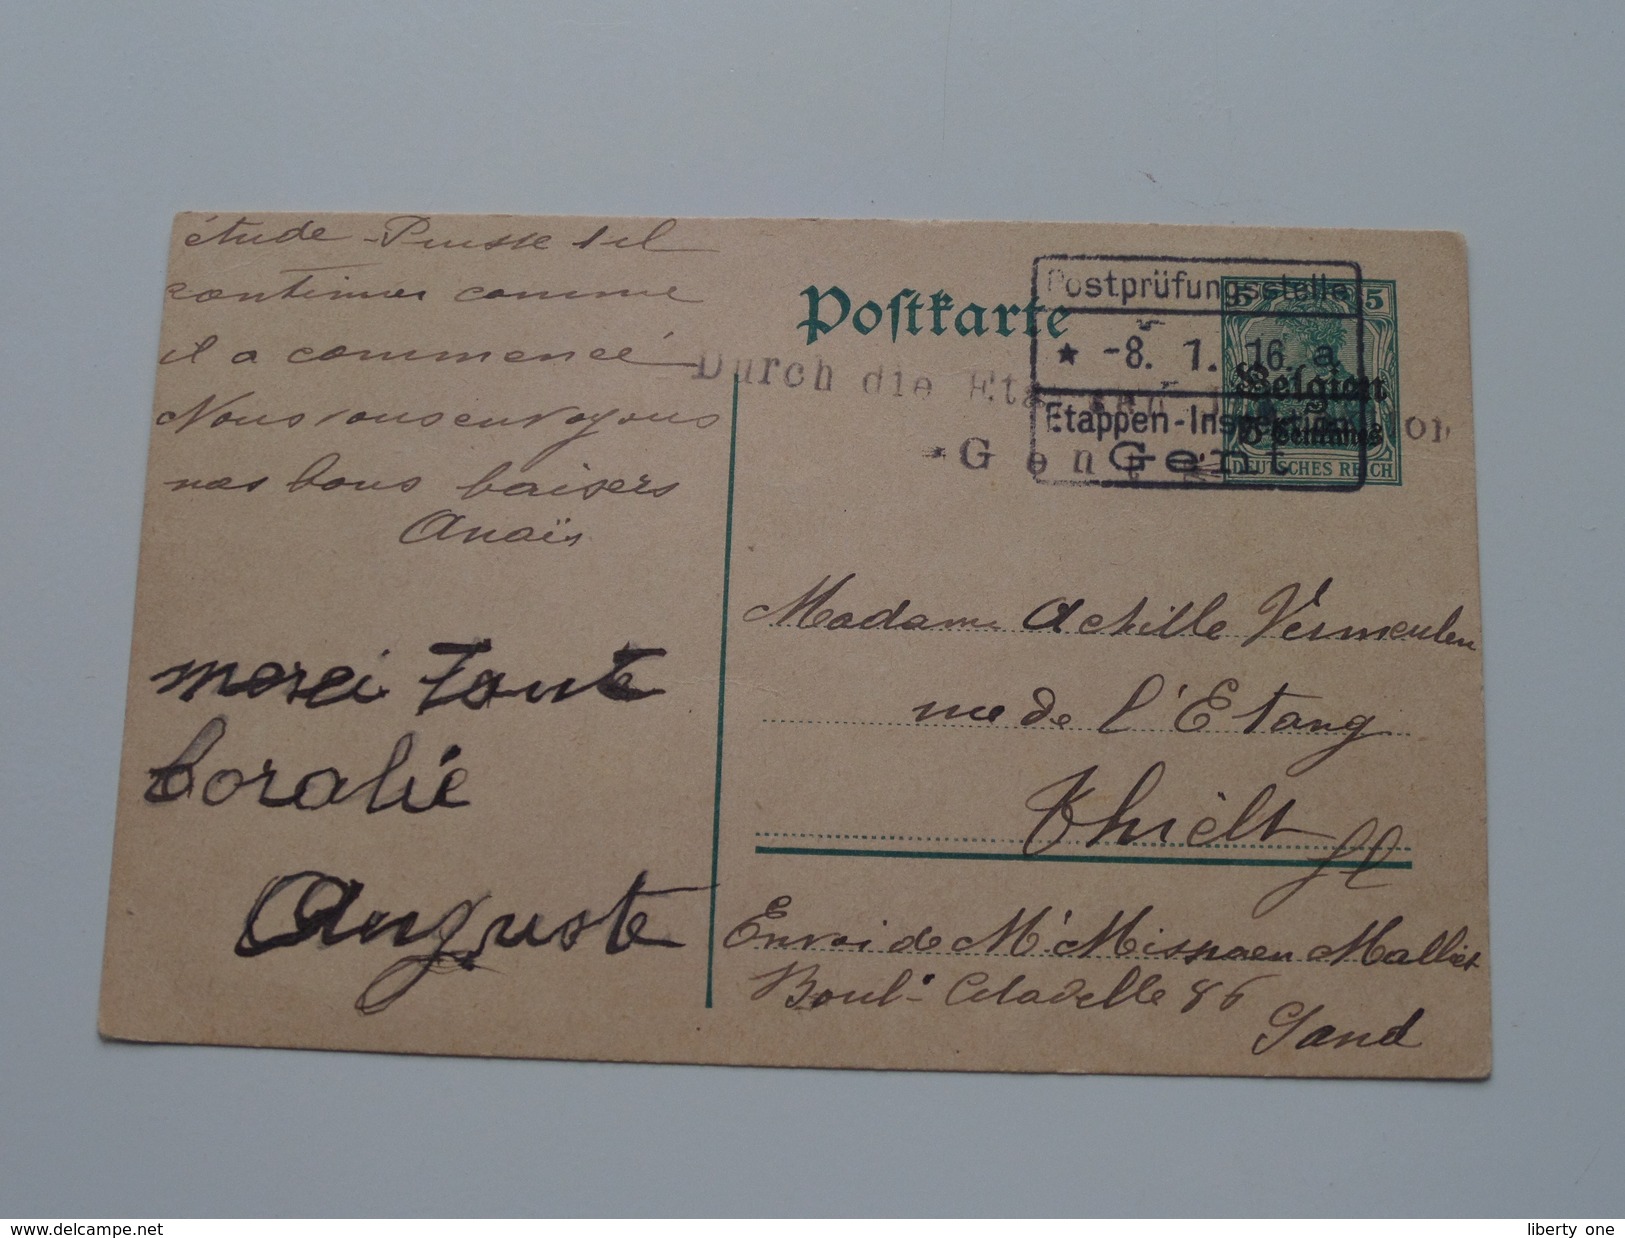 étude - Puisse t-il
continuer comme
il a commencé
Nous vous envoyons
nos bons baisers
Anaïs
merci Tante
Coralie
Auguste
Postkarte
Postprüfungsstelle
* -8. 1. 16. a
Etappen-Inspektion
Gent
Durch die Etappen
Gent
5 5
Belgien
5 Centimes
DEUTSCHES REICH
Madame Achille Vermeulen
rue de l'Etang
Thielt
Fl
Envoi de Mr Mispaen Malliet
Boul. Citadelle 86
Gand
delcampe.net
liberty_one